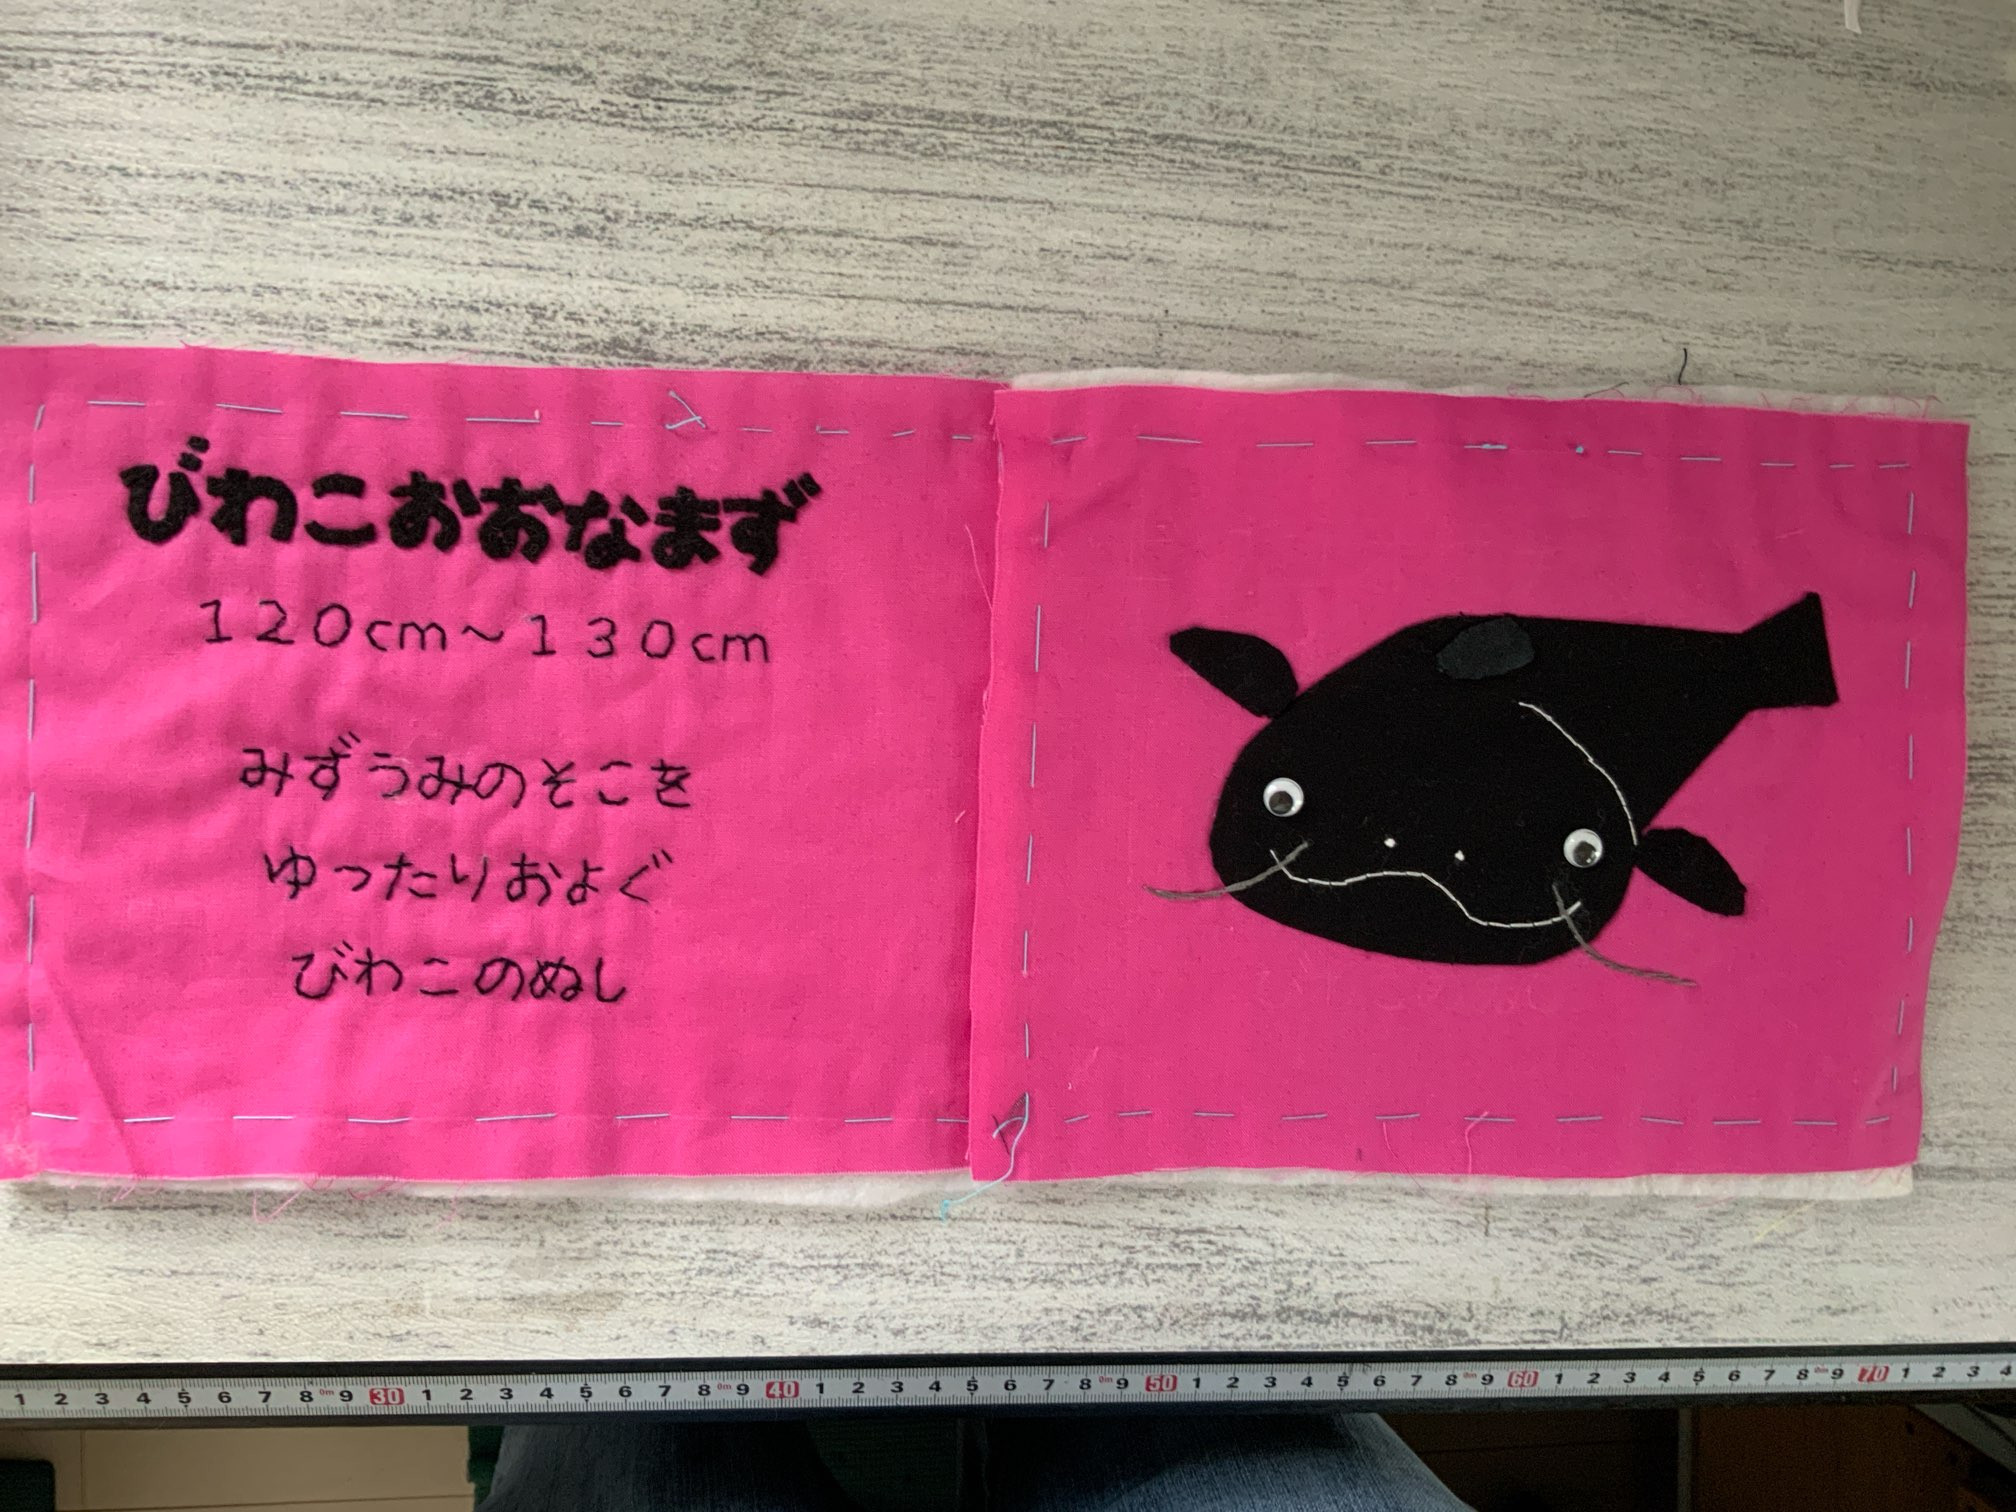 びわこおおなまず
120cm～130cm
みずうみのそこを
ゆったりおよぐ
びわこのぬし
1 2 3 4 5 6 7 8 9 30 1 2 3 4 5 6 7 8 9 40 1 2 3 4 5 6 7 8 9 50 1 2 3 4 5 6 7 8 9 60 1 2 3 4 5 6 7 8 9 70 1 2 3 4